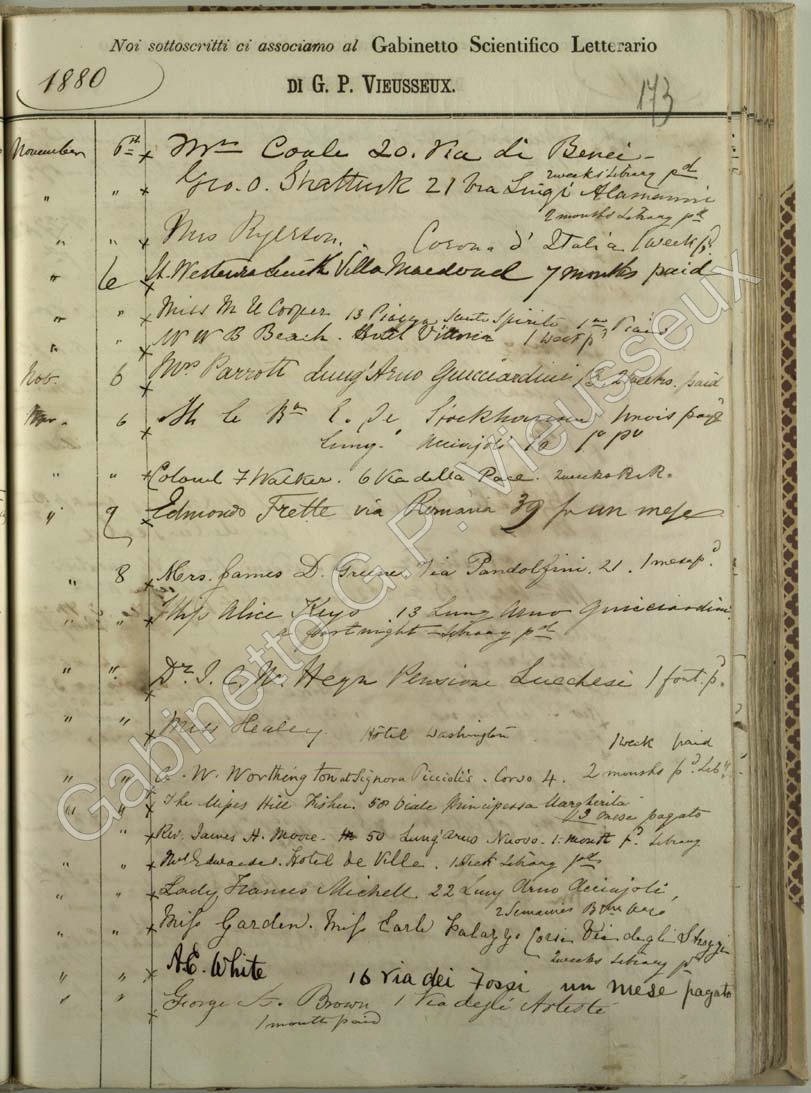 Noi sottoscritti ci associamo al Gabinetto Scientifico Letterario
DI G. P. VIEUSSEUX.
1880
173
November 6 x Mrs Coale 20. Via di Benci
2 weeks Library pd
" " x Geo. O. Shattuck 21 Via Luigi Alamanni
2 months Library pd
" " Mrs Ryerson. Corona d'Italia 1 week pd
" 6 x Villa Macdonel 7 months paid
" " x Miss M E Cooper 13 Piazza Santo Spirito 1 m paid
" x W W B Beach. Hotel Vittoria 1 week pd
Nov. 6 x Mrs Parrott Lung'Arno Guicciardini 13, 2 weeks. paid
Nov. 6 x
Lung. Acciajoli
" " x Colonel F Walker. 6 Via della Pace. 2 weeks R.R.
" x Edmondo Frette via Romana 39 p un mese
" 8 x Mrs. James D. Greene Via Pandolfini. 21. 1 mese pd
" " x Miss Alice Keys. 13 Lung Arno Guicciardini
a fortnight - Library pd
" " x Dr. J. C. W. Heyn Pensione Lucchesi 1 font. pd
" " x Miss Healey Hôtel Washington 1 week paid
" " x W. Worthington at Signora Piccioli's. Corso 4. 2 months pd Liby
" " x The Misses Hill Fisher. 58 Viale Principessa Margherita
3 mese pagato
" " x Rev. James H. Moore. 50 Lung'Arno Nuovo. 1 month pd Library
" " x Mrs Edwardes. Hotel de Ville. 1 week Library pd
" " x Lady Frances Michell. 22 Lung Arno Acciajoli,
2 Semaines
" " x Miss Garden. Miss Earle Palazzo Corsi Via degli Strozzi
2 weeks Library pd
" " x A.E. White 16 Via dei Fossi un mese pagato
" " x George A. Brown 1 Via degli Artisti
1 month paid
Gabinetto G.P. Vieusseux